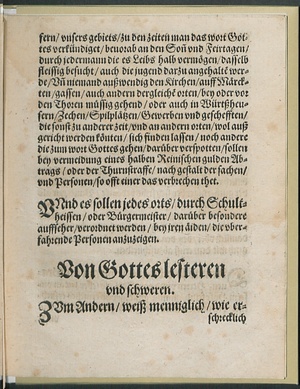 fern/ vnsers gebiets/ zu den zeiten man das wort Got-
tes verkündiget/ beuorab an den Son vnd Feirtagen/
durch jedermann die es Leibs halb vermögen/ dasselb
fleissig besucht/ auch die jugend darzu angehaltē wer-
de/ Vn niemand ausswendig den Kirchen/ auff Märck-
ten/ gassen/ auch andern dergleichē orten/ bey oder vor
den Thoren müssig gehend/ oder auch in Würtzheu-
sern/ Zechen/ Spilplätzen/ Gewerben vnd geschefften/
die sonst zu anderer zeit/ vnd an andern orten/ wol auß
gericht werden könten/ sich finden lassen/ noch andere
die zum wort Gottes gehen/ darüber verspotten/ sollen
bey vermeidung eines halben Reinischen gulden Ab-
trags/ oder der Thurnstraffe/ nach gestalt der sachen/
vnd Personen/ so offt einer das verbrechen thet.
VNnd es sollen jedes orts/ durch Schult-
heissen/ oder Bürgermeister/ darüber besondere
auffseher/ verordnet werden/ bey jren äiden/ die vber-
fahrende Personen anzuzeigen.
Von Gottes lesteren
vnd schweren.
ZVm Andern/ weiß menniglich/ wie er-
schrecklich